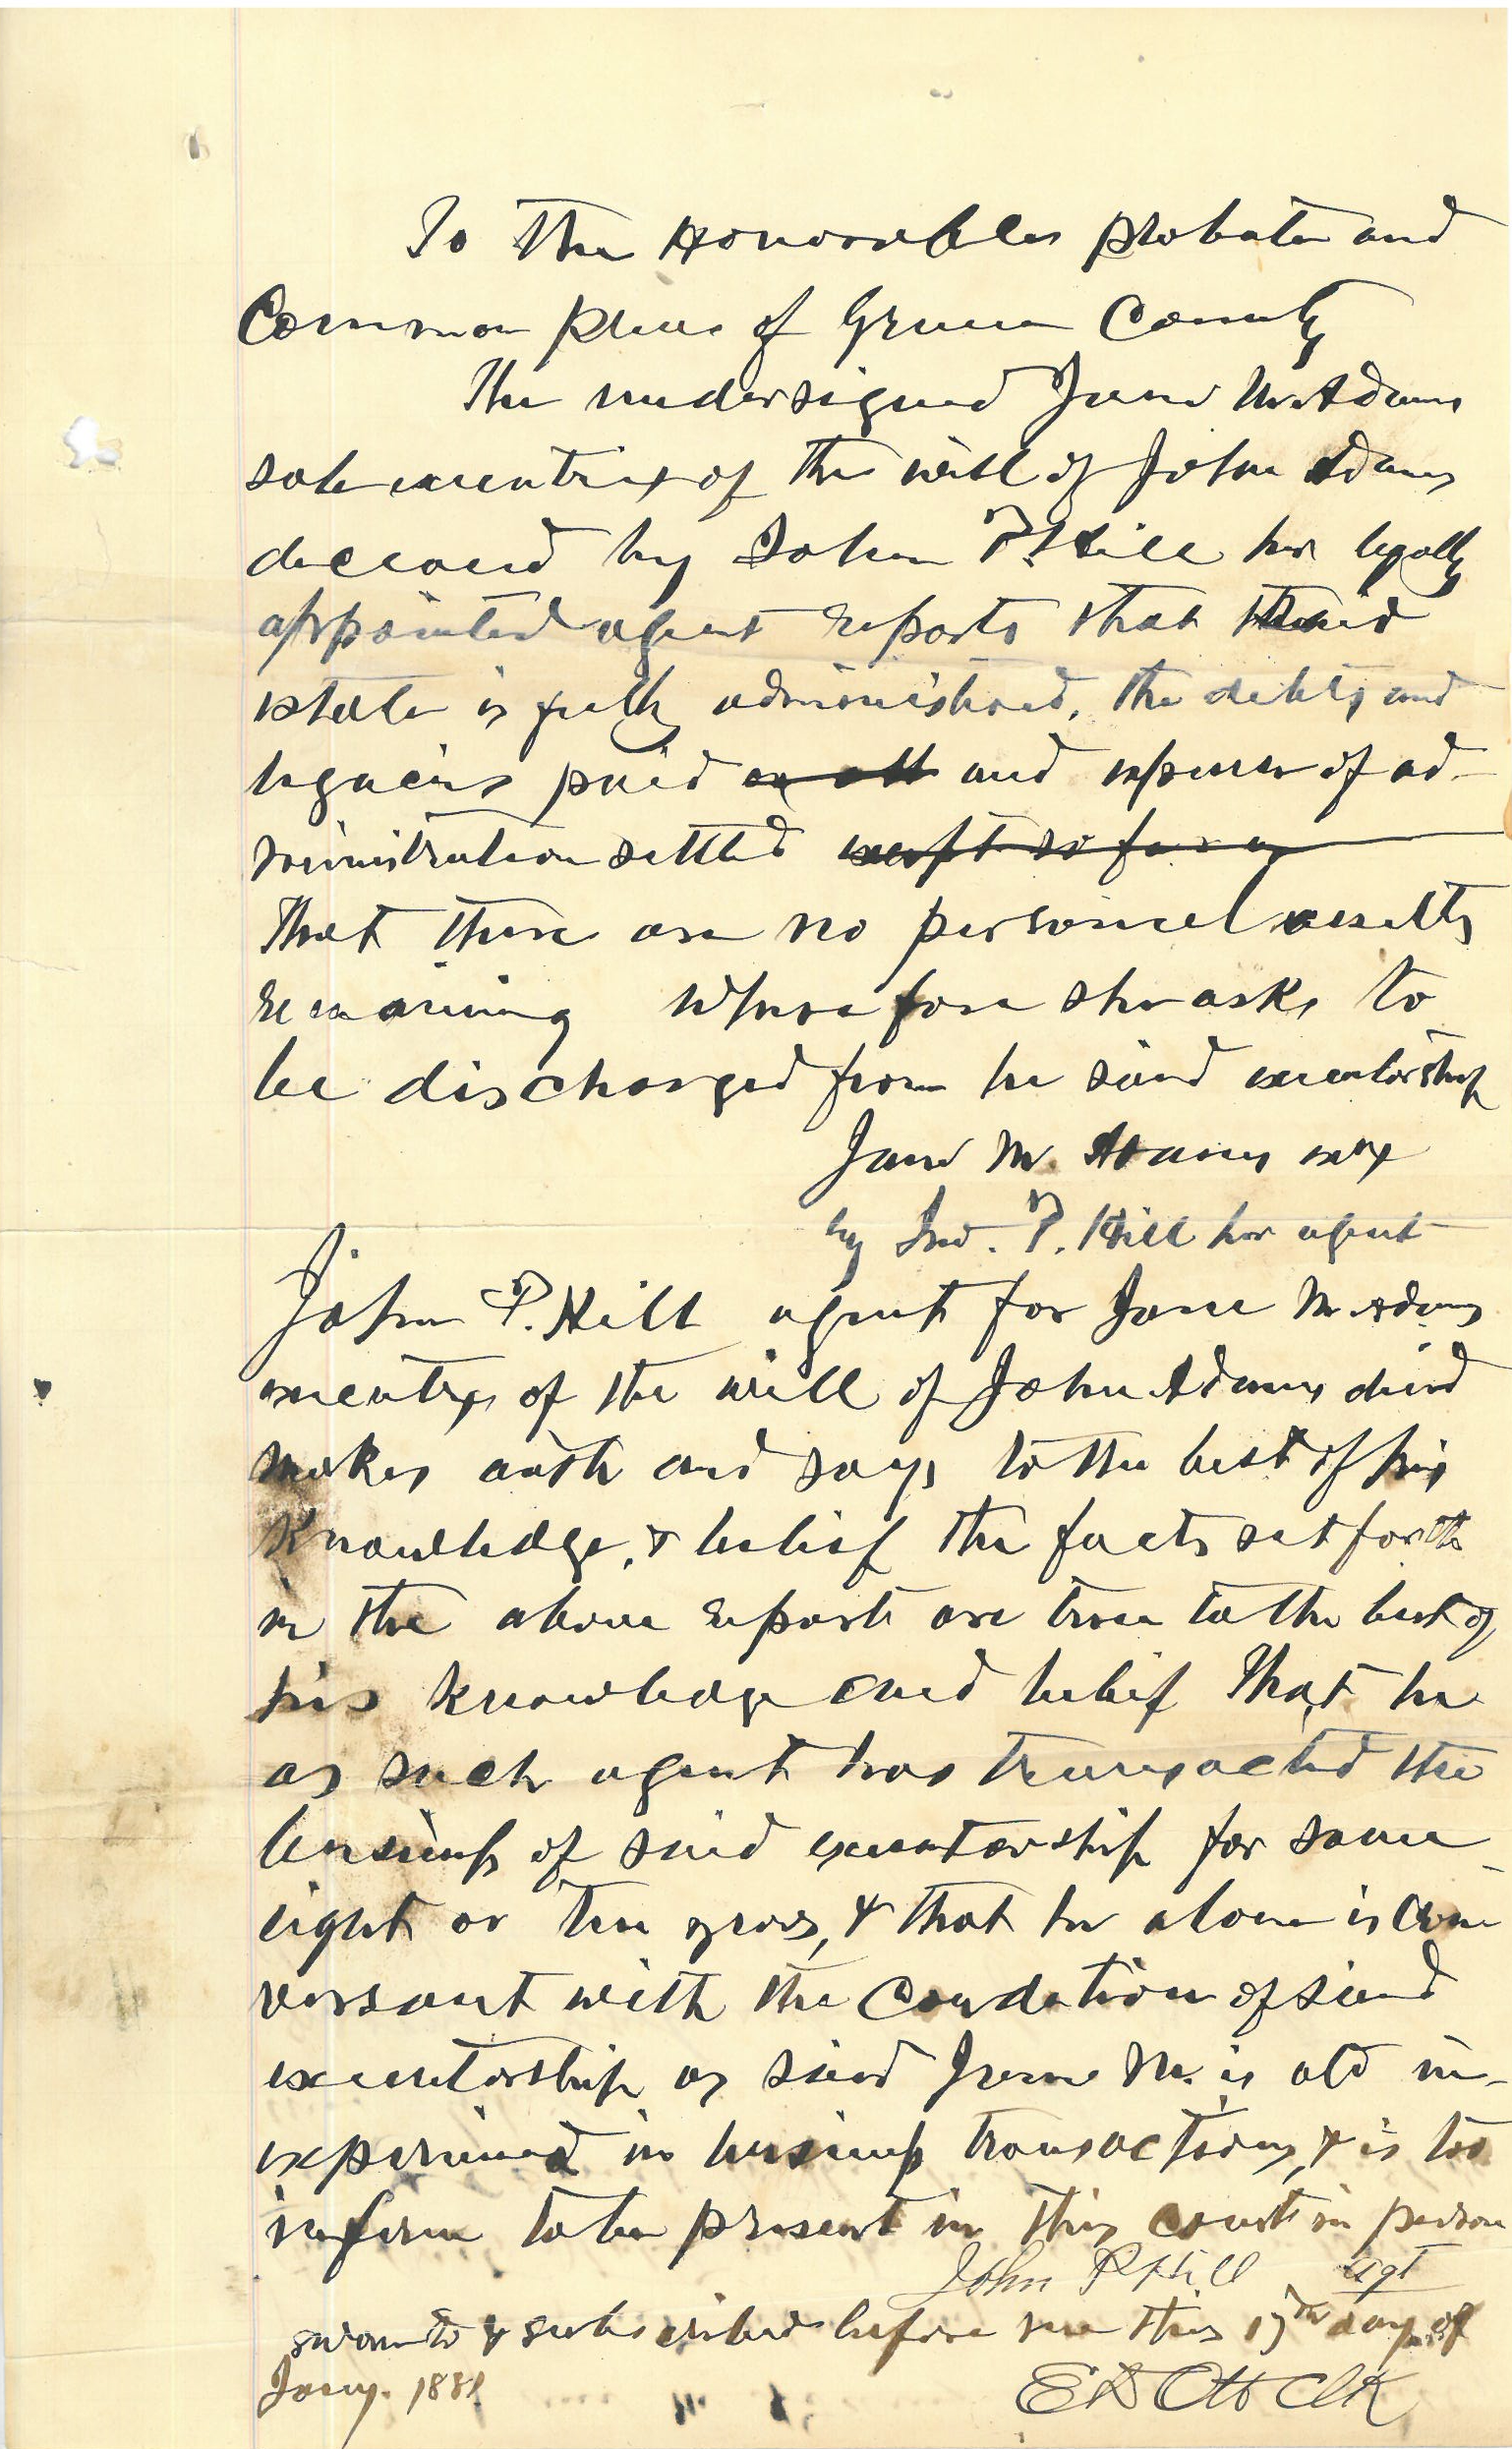 To the Honorable probate and
Common Pleas of Greene County
The undersigned Jane M. Adams
sole executrix of the will of John Adams
deceased by John P. Hill her legally
appointed agent reports that said
estate is fully administered, the debts and
legacies paid and expenses of ad-
ministration settled except so far as
That there are no personal assetts
remaining wherefore she asks to
be discharged from he said executorship
Jane M. Adams exrx
by Jno. P. Hill her agent
John P. Hill agent for Jane M. Adams
executrix of the will of John Adams decd
makes oath and says to the best of his
knowledge, & belief the facts set forth
in the above report are true to the best of
his knowledge and belief That he
as such agent has transacted the
business of said executorship for some
eight or ten years, & that he alone is con
versant with the condation of said
executorship as said Jane M. is old in-
experienced in business transactions, & is too
infirm to be present in this court in person
John P Hill agt
sworn to & subscribed before me this 17th day of
Jany. 1881
E D Ott Clk